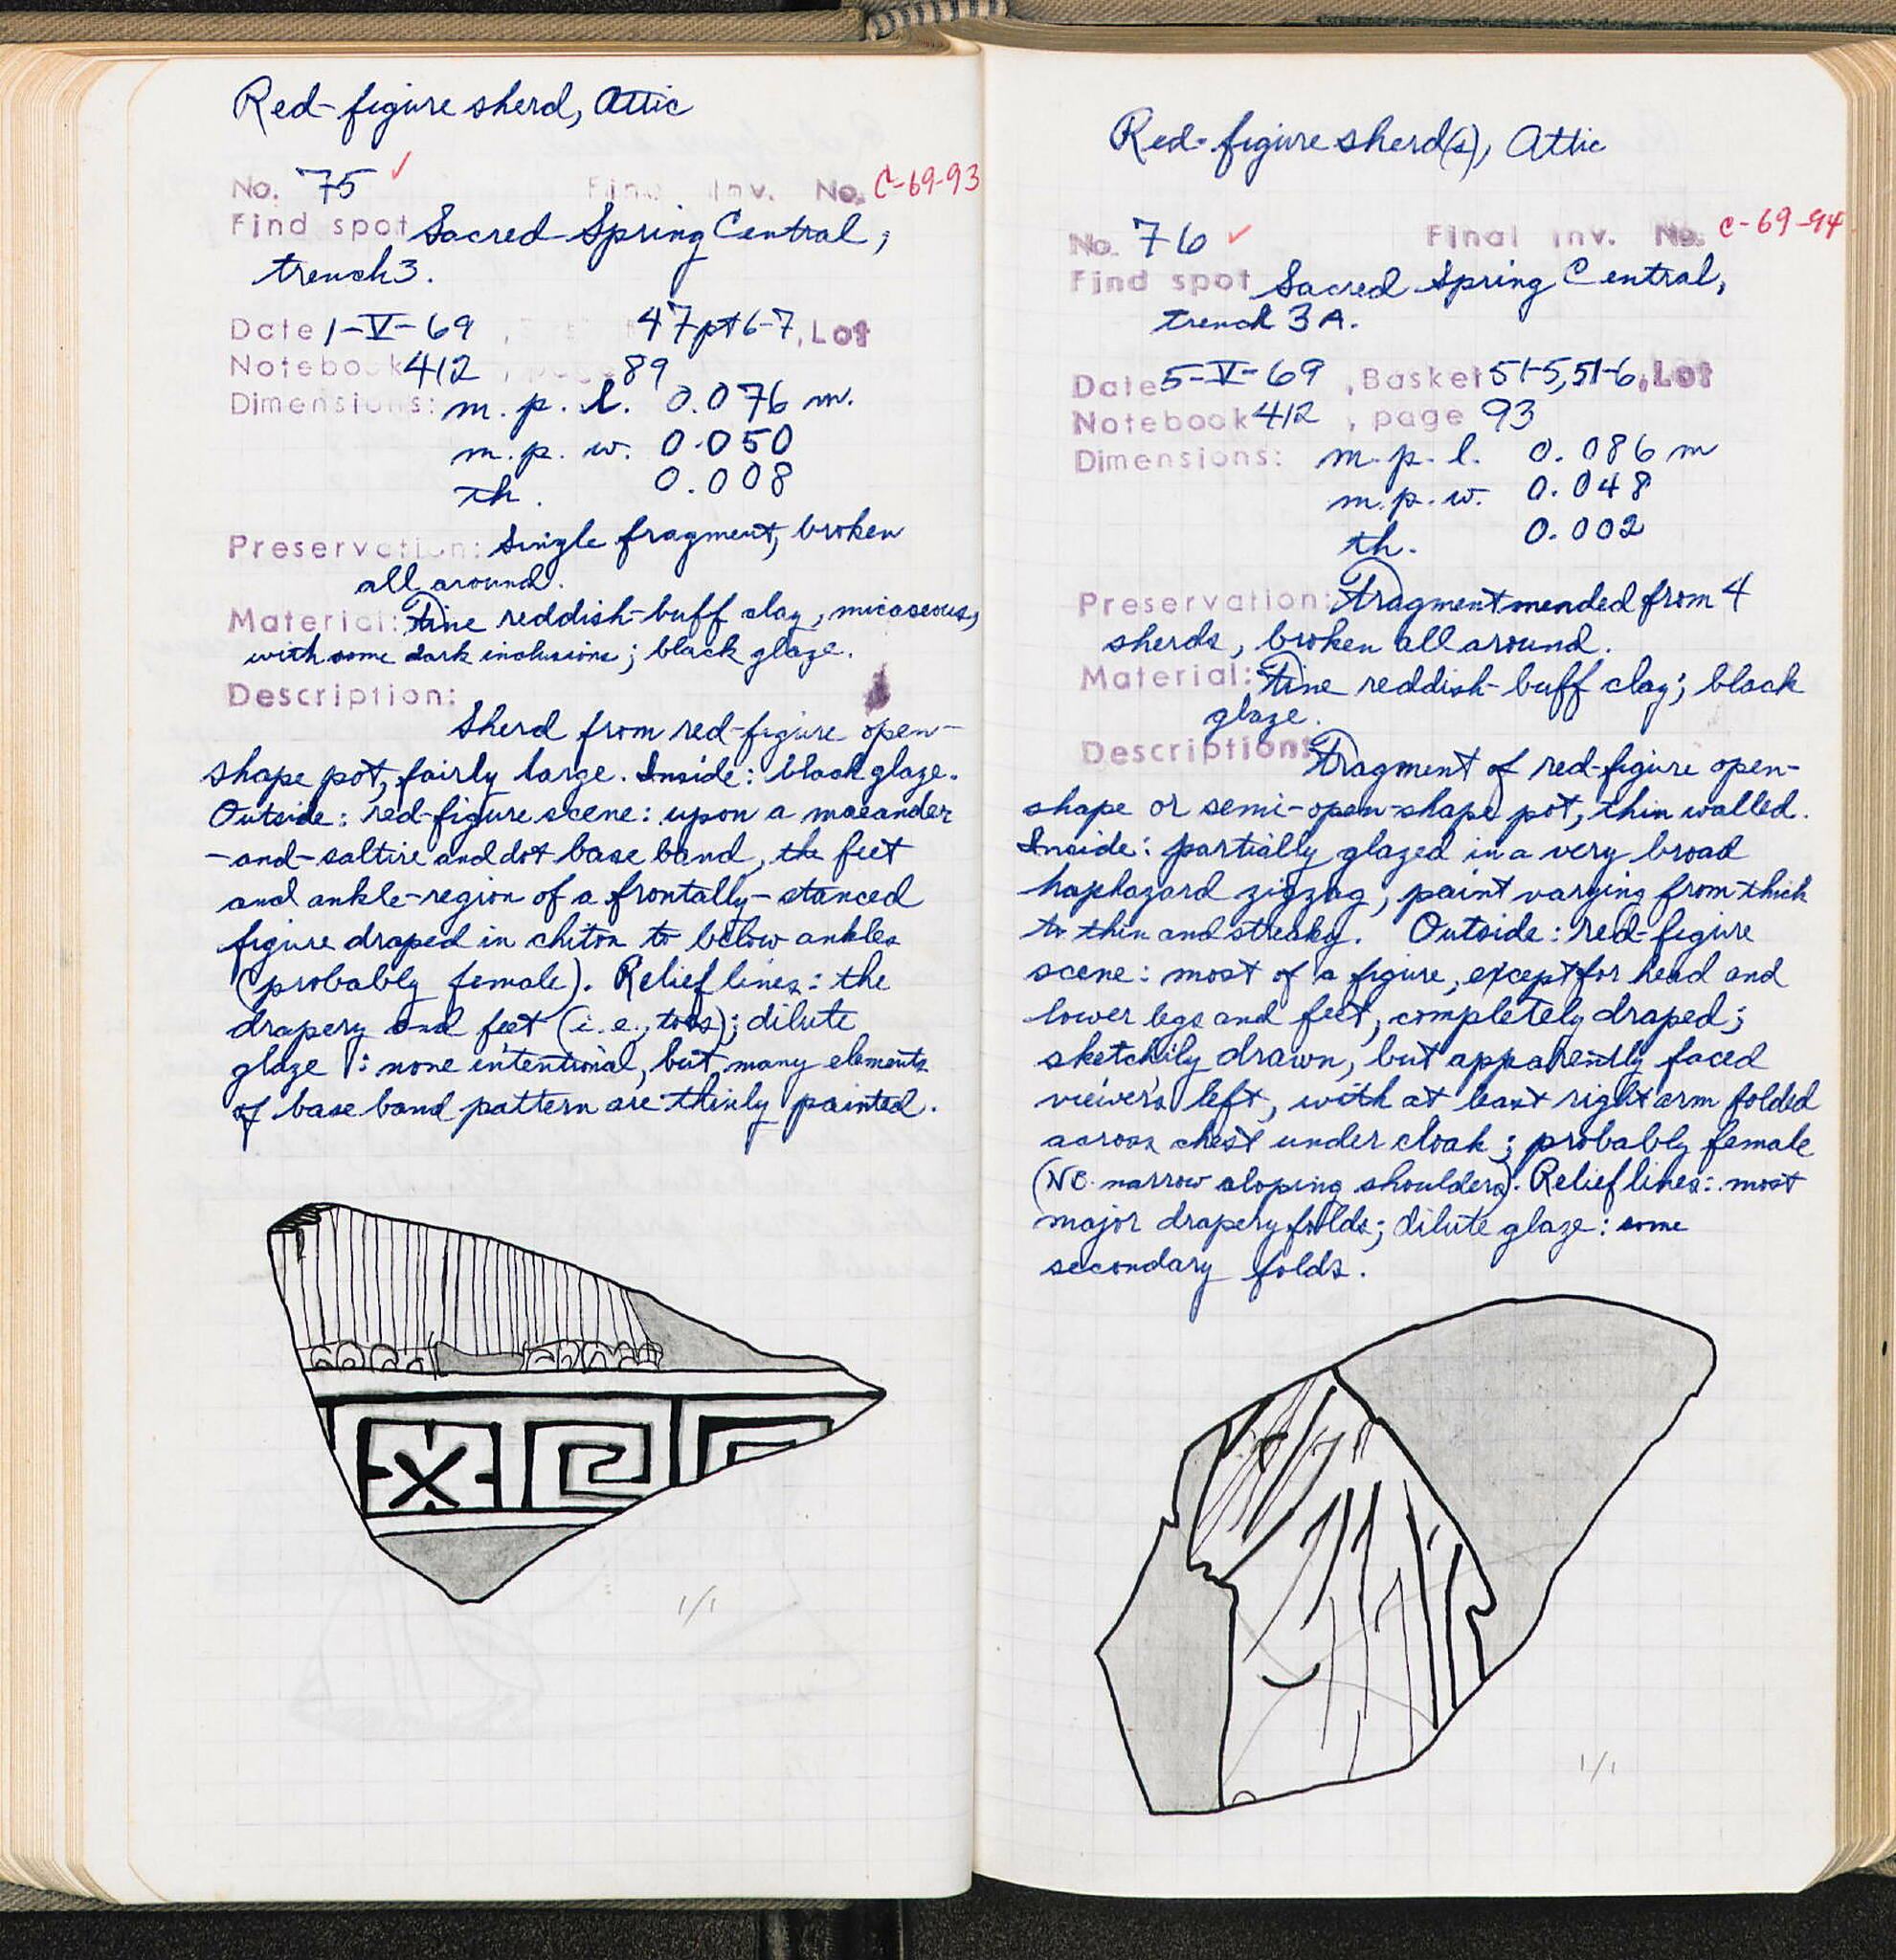 Red-figure sherd, Attic
No. 75 ✓ Final Inv. No. C-69-93
Find spot Sacred Spring Central,
trench 3.
Date 1-V-69, 47 pt 6-7, Lot
Notebook 412, page 89
Dimensions: m. p. l. 0.076 m.
m. p. w. 0.050
th. 0.008
Preservation: Single fragment, broken
all around.
Material: Fine reddish-buff clay, micaseous,
with some dark inclusions; black glaze.
Description:
Sherd from red-figure open-
shape pot, fairly large. Inside: black glaze.
Outside: red-figure scene: upon a maeander
-and-saltire and dot base band, the feet
and ankle-region of a frontally-stanced
figure draped in chiton to below ankles
(probably female). Relief lines: the
drapery and feet (i.e., toes); dilute
glaze: none intentional, but many elements
of base band pattern are thinly painted.
1/1
Red-figure sherd(s), Attic
No. 76 ✓ Final Inv. No. C-69-94
Find spot Sacred Spring Central,
trench 3A.
Date 5-V-69, Basket 51-5, 51-6, Lot
Notebook 412, page 93
Dimensions: m. p. l. 0.086 m
m. p. w. 0.048
th. 0.002
Preservation: Fragment mended from 4
sherds, broken all around.
Material: Fine reddish-buff clay; black
glaze.
Description: Fragment of red-figure open-
shape or semi-open-shape pot, thin walled.
Inside: partially glazed in a very broad
haphazard zigzag, paint varying from thick
to thin and streaky. Outside: red-figure
scene: most of a figure, except for head and
lower legs and feet, completely draped;
sketchily drawn, but apparently faced
viewer's left, with at least right arm folded
across chest under cloak; probably female
(NB. narrow sloping shoulders). Relief lines: most
major drapery folds; dilute glaze: some
secondary folds.
1/1